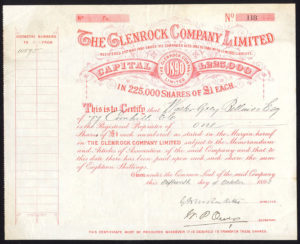 DISTINCTIVE NUMBERS
TO FROM
No 118
THE GLENROCK COMPANY LIMITED
CAPITAL £225,000
IN 225,000 SHARES OF £1 EACH.
This is to Certify that Walter Grey Esq
of 77 Cornhill E.C.
is the Registered Proprietor of one
Shares of £1 each numbered as stated in the Margin hereof
in THE GLENROCK COMPANY LIMITED subject to the Memorandum
and Articles of Association of the said Company and that at
this date there has been paid upon each such share the sum
of Eighteen Shillings.
Given under the Common Seal of the said Company
this day of October
DIRECTOR
SECRETARY
THIS CERTIFICATE MUST BE PRODUCED WHENEVER IT IS DESIRED TO TRANSFER THESE SHARES